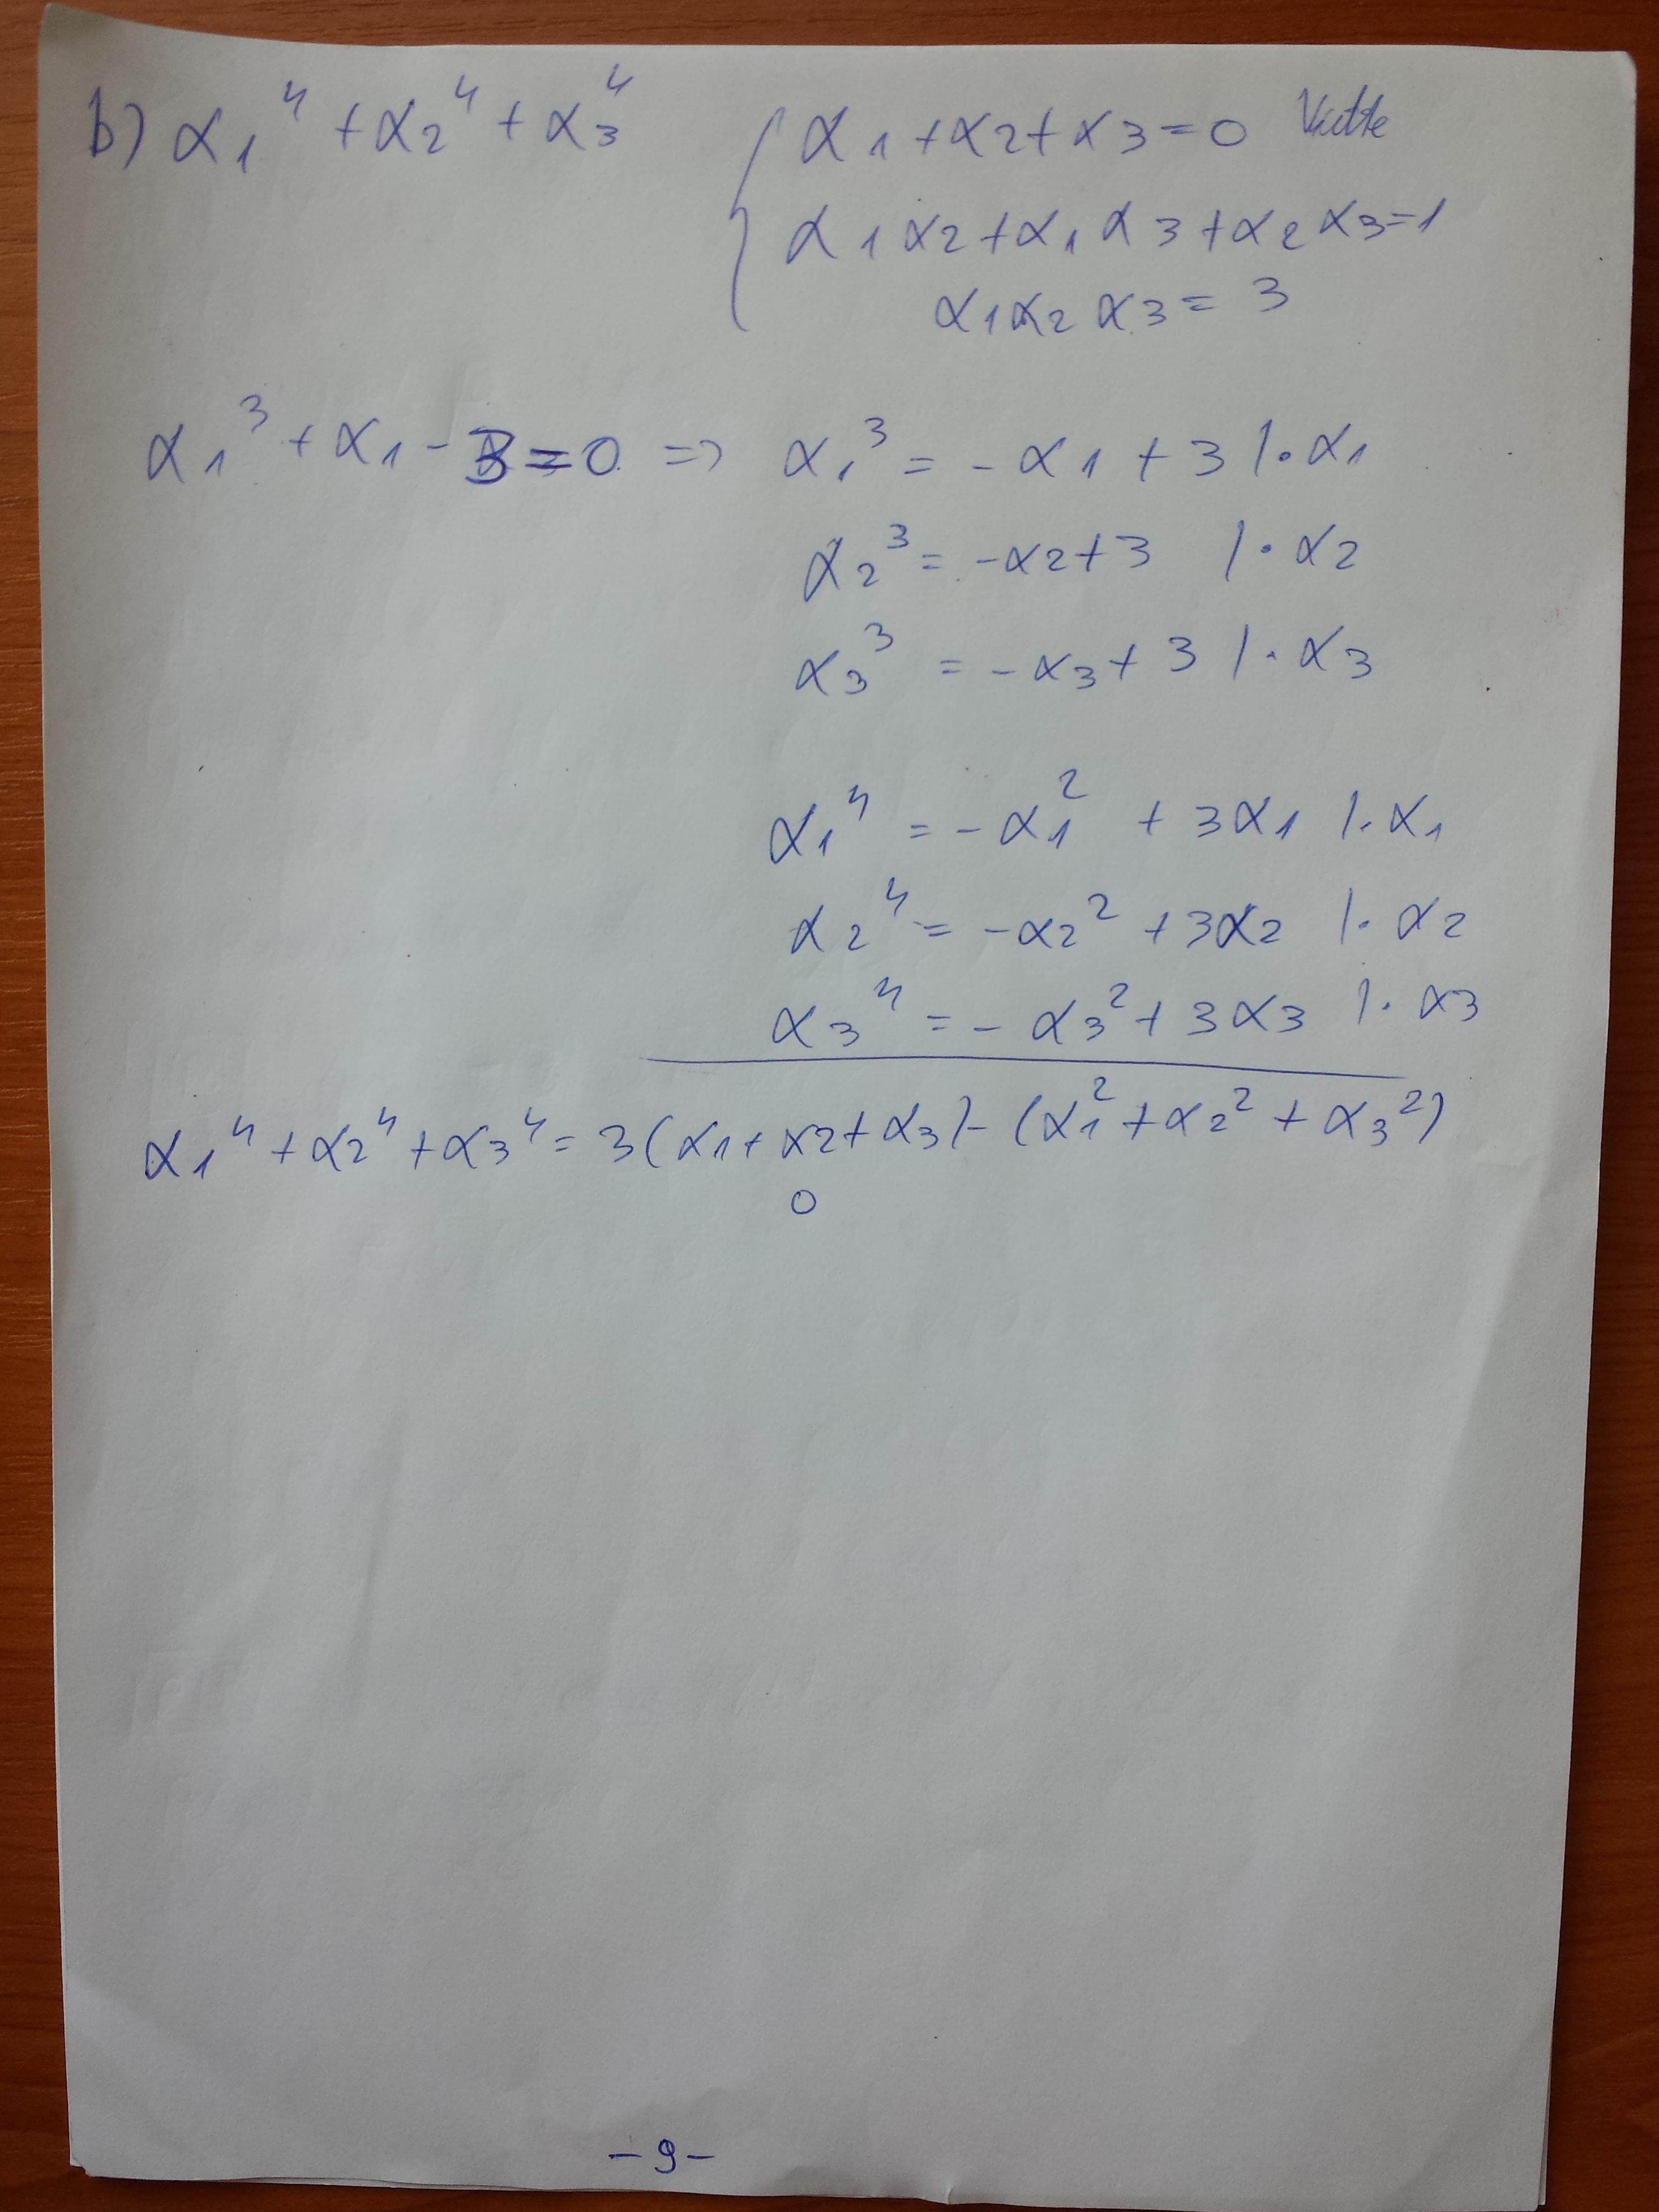 b) α₁⁴ + α₂⁴ + α₃⁴
α₁ + α₂ + α₃ = 0
α₁α₂ + α₁α₃ + α₂α₃ = 1
α₁α₂α₃ = 3
α₁³ + α₁ - 3 = 0 => α₁³ = -α₁ + 3 /·α₁
α₂³ = -α₂ + 3 /·α₂
α₃³ = -α₃ + 3 /·α₃
α₁⁴ = -α₁² + 3α₁ /·α₁
α₂⁴ = -α₂² + 3α₂ /·α₂
α₃⁴ = -α₃² + 3α₃ /·α₃
α₁⁴ + α₂⁴ + α₃⁴ = 3(α₁ + α₂ + α₃) - (α₁² + α₂² + α₃²)
0
-9-